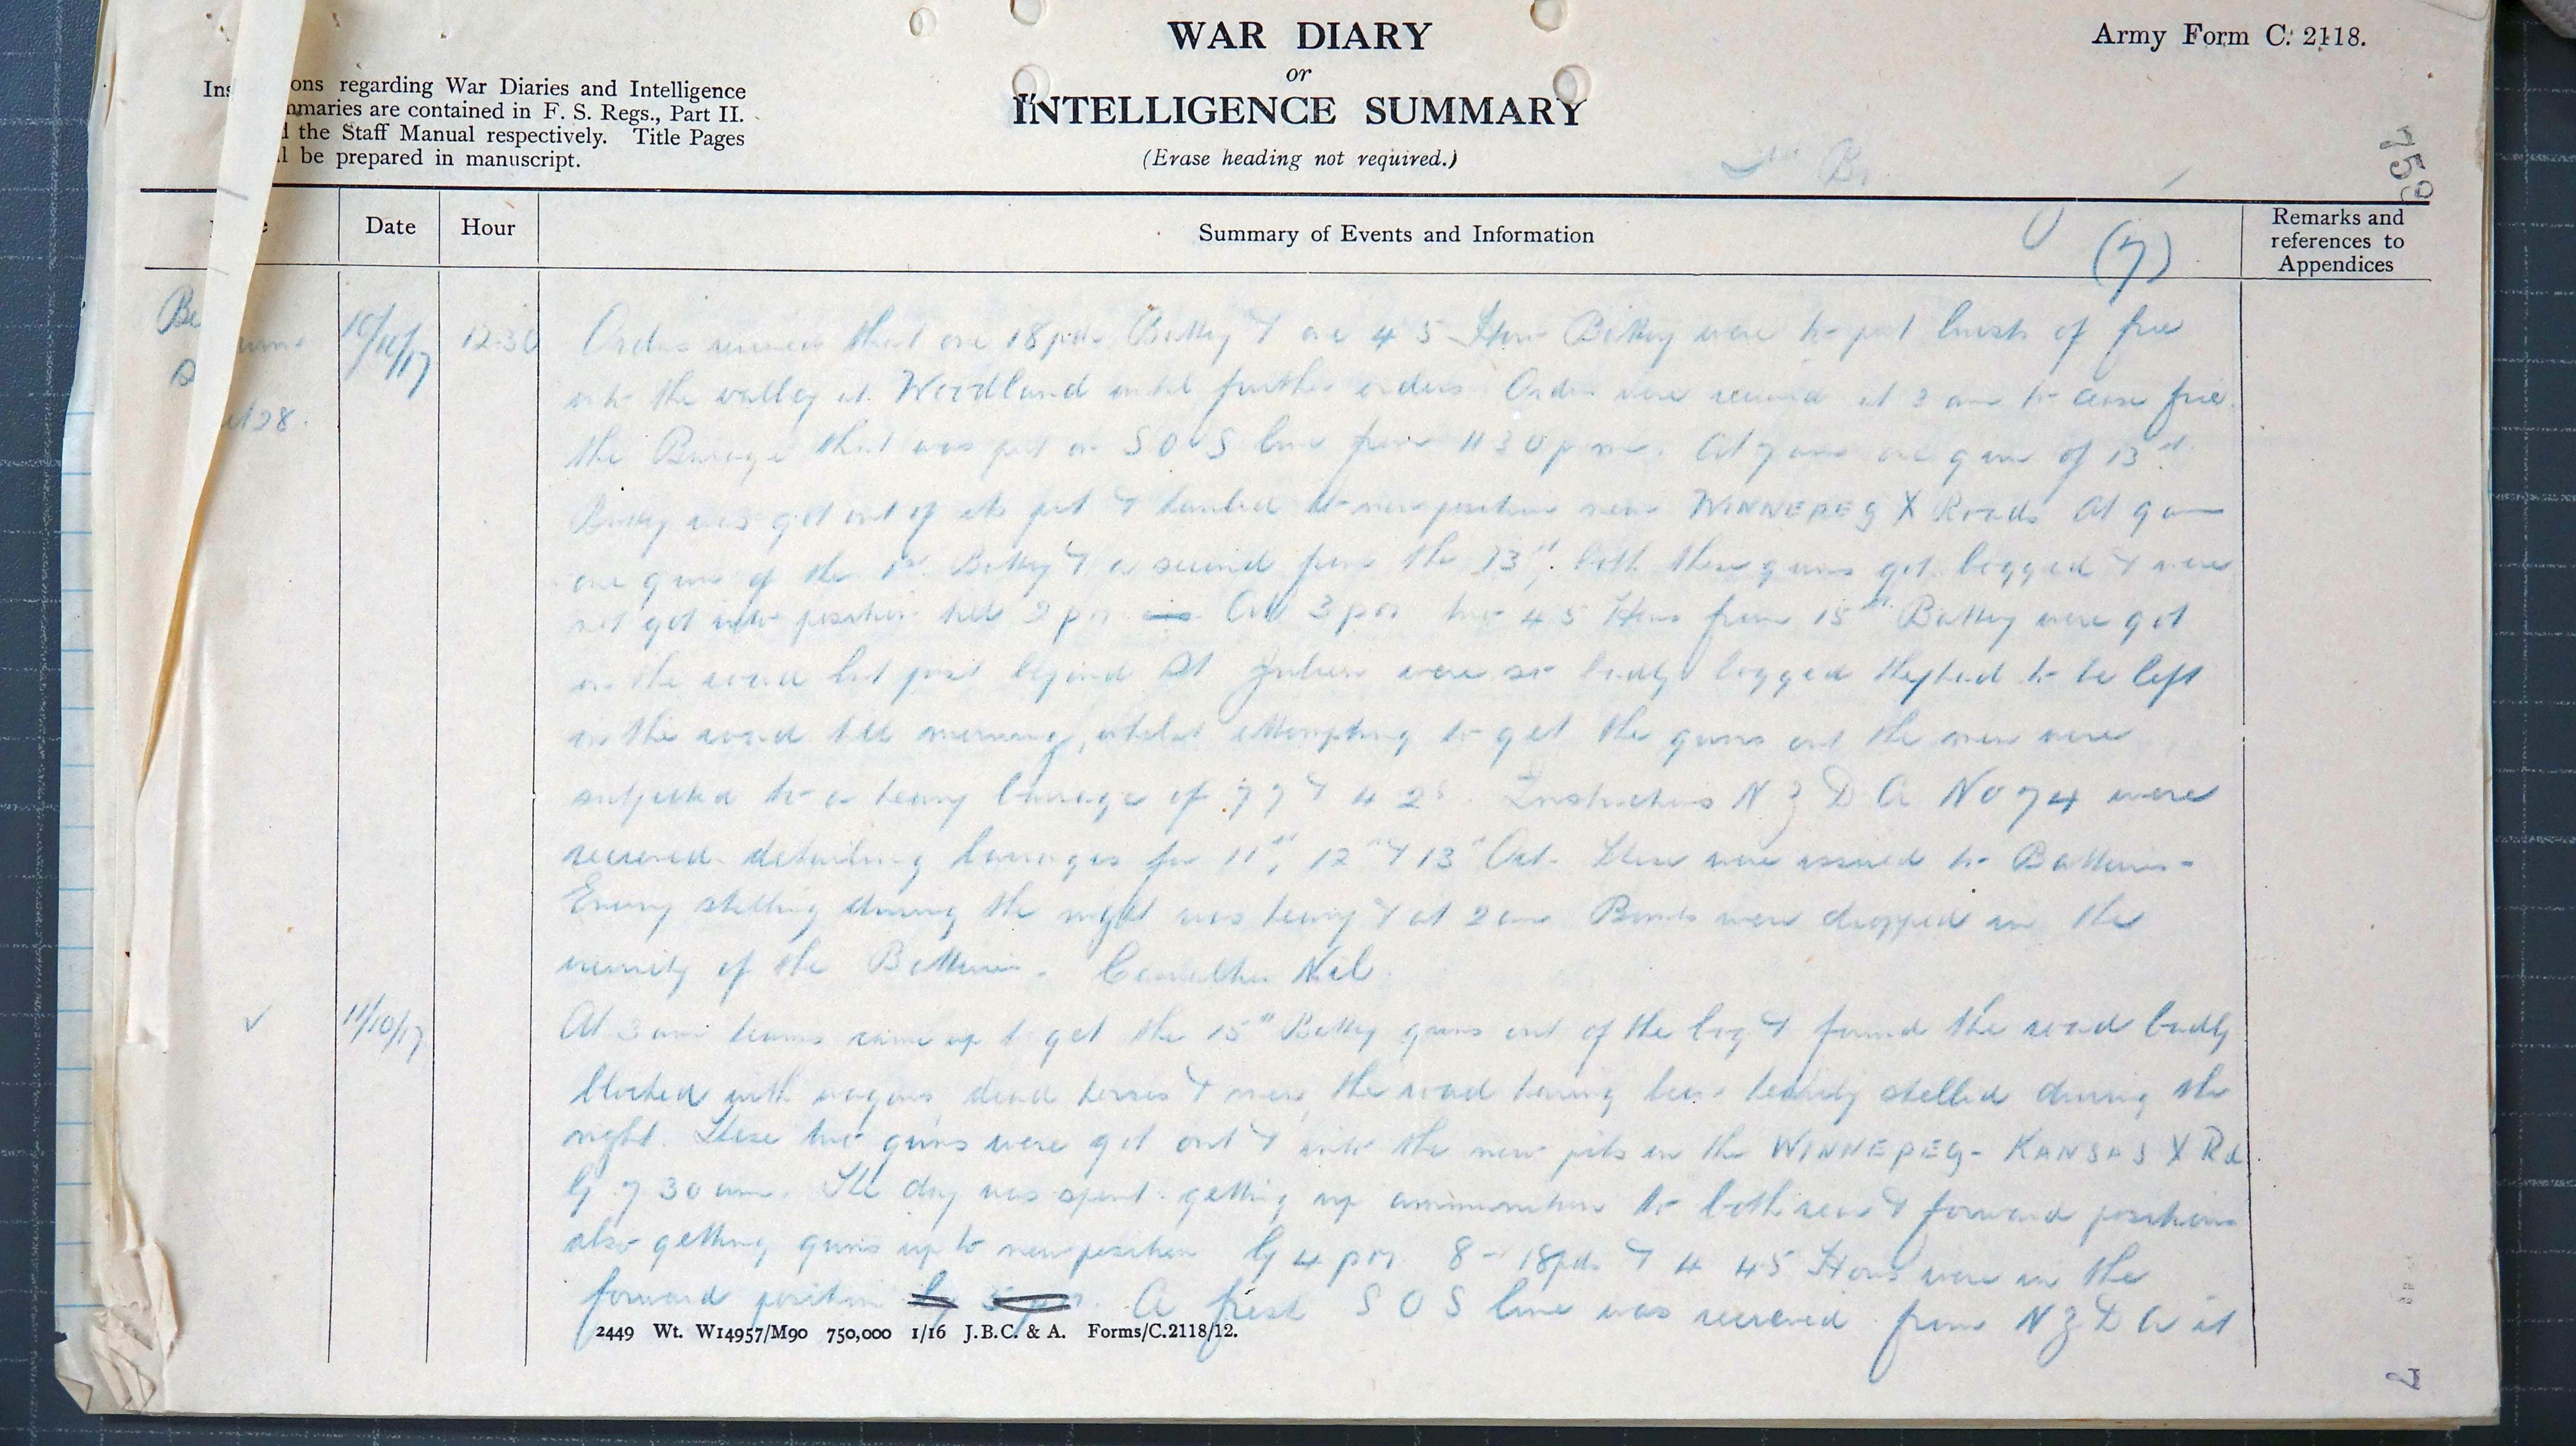 WAR DIARY
or
INTELLIGENCE SUMMARY
(Erase heading not required.)
Army Form C. 2118.
Ins ons regarding War Diaries and Intelligence
mmaries are contained in F. S. Regs., Part II.
d the Staff Manual respectively. Title Pages
ll be prepared in manuscript.
759
e
Date
Hour
Summary of Events and Information
(7)
Remarks and
references to
Appendices
10/10/17
12.30
28.
Orders received that one 18 pdr Battery & one 4 5 How Battery were to put bursts of fire
into the valley at Woodland until further orders. Orders were received at 3 am to cease fire.
the Barrage that was put on S O S line from 11 30 pm. At 7 am one gun of 13th
Battery was got out of its pit & hauled to new position near WINNEPEG X Roads At 9 am
one gun of the 1st Battery & a second from the 13th, both these guns got bogged & were
not got into position till 2 pm At 3 pm two 4 5 Hows from 15th Battery were got
on the road but just beyond St Julien were so badly bogged they had to be left
on the road till morning, whilst attempting to get the guns out the men were
subjected to a heavy barrage of 77 & 4 2s Instructions N Z D A No 74 were
received detailing barrages for 11th, 12th & 13th Oct. These were issued to Batteries -
Enemy shelling during the night was heavy & at 2 am Bombs were dropped in the
vicinity of the Batteries. Casualties Nil.
11/10/17
At 3 am teams came up to get the 15th Battery guns out of the bog & found the road badly
blocked with wagons, dead horses & men, the road having been heavily shelled during the
night. These two guns were got out & into the new pits on the WINNEPEG - KANSAS X Rd
by 7 30 am. The day was spent getting up ammunition to both rear & forward positions
also getting guns up to new position by 4 pm 8 - 18 pdr & 4 4 5 Hows were in the
forward position by 5 pm. A fresh S O S line was received from N Z D A at
2449 Wt. W14957/M90 750,000 1/16 J.B.C. & A. Forms/C.2118/12.